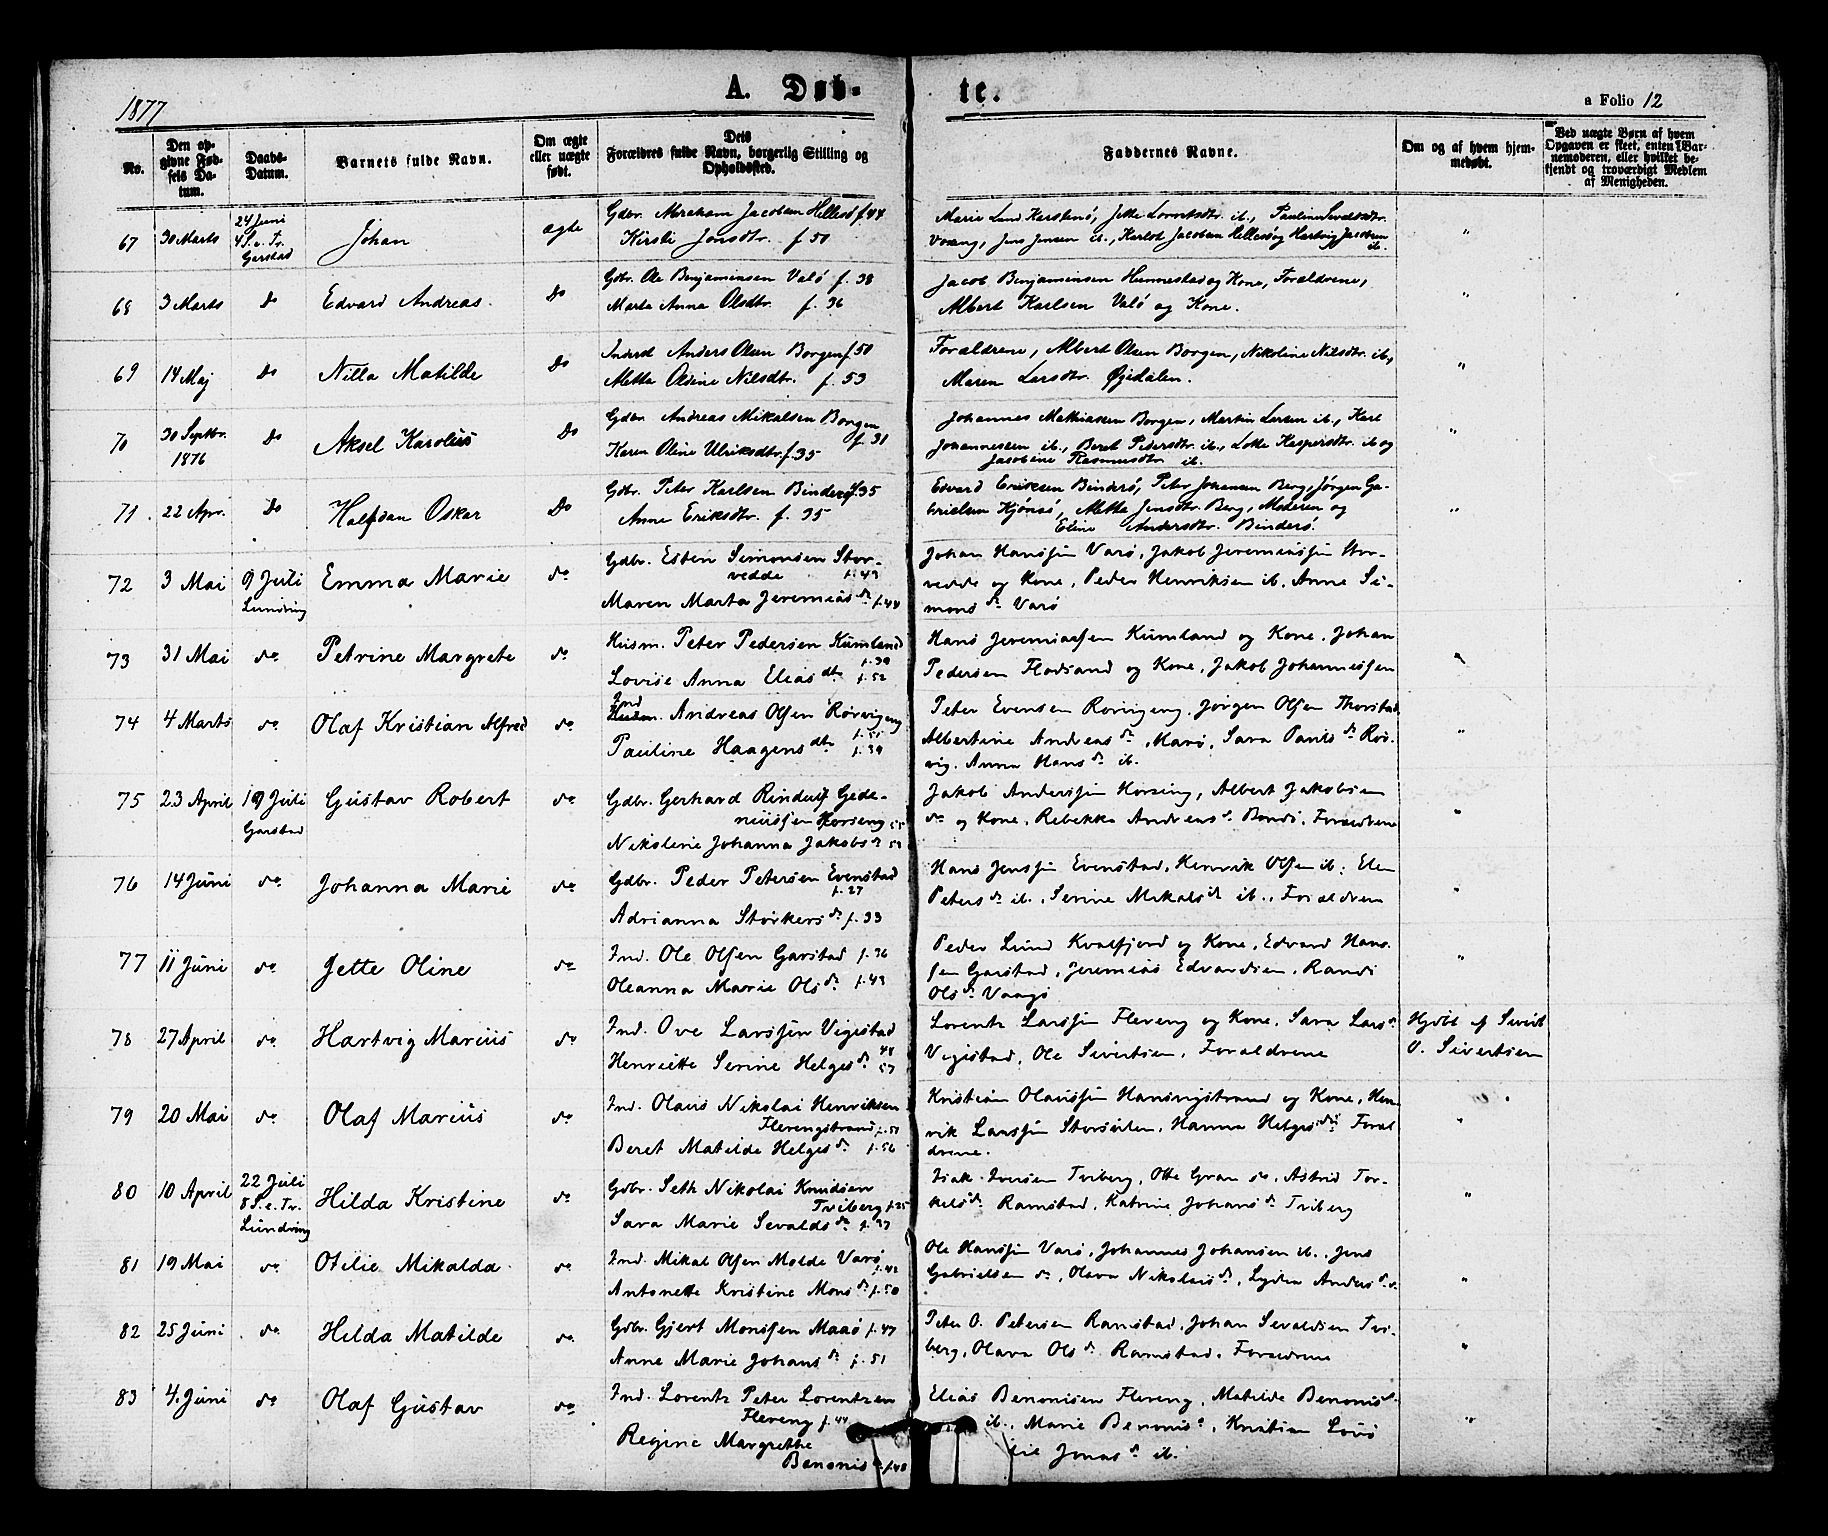 1877
A. Døb-
te.
a Folio 12
No.
Den op-
givne Fød-
sels Da-
tum.
Daabs-
Datum.
Barnets fulde Navn.
Om ægte
eller uægte
født.
Dets
Forældres fulde Navn, borgerlig Stilling og
Opholdssted.
Faddernes Navne.
Om og af hvem hjem-
medøbt.
Ved uægte Børn af hvem
Opgaven er skeet, enten Bar-
nemoderen, eller hvilket be-
kjendt og troværdigt Medlem
af Menigheden.
67 30 Marts 24 Juni
4 S. e. Tr.
Garstad
Johan ægte
Gdbr. Abraham Jacobsen Hellesø f. 44
Kirsti Jonsdtr. f. 50
Marie Lund Karstenø, Jette Lorentsdtr. ib., Pauline Sevaldsdtr.
Voxeng, Jens Jensen ib., Karlot Jacobsen Hellesø og Hartvig Jacobsen
ib.
"
68 3 Marts Do Edvard Andreas. Do
Gdbr. Ole Benjaminsen Valø f. 38
Marta Anna Olsdtr. f. 36
Jacob Benjaminsen Hunnestad og Kone, Forældrene,
Albert Karlsen Valø og Kone.
"
69 14 Maj Do Nilla Matilde Do
Inderst Anders Olsen Borgen f. 50
Mette Oldine Nilsdtr. f. 53
Forældrene, Albert Olsen Borgen, Nikoline Nilsdtr. ib.,
Maren Larsdtr. Øjedalen.
"
70 30 Septbr.
1876
Do Aksel Karolius Do
Gdbr. Andreas Mikalsen Borgen
f. 31
Karen Oline Ulriksdtr. f. 35
Johannes Mathiasen Borgen, Martin Larsen ib., Karl
Johannessen ib., Beret Pedersdtr. ib., Lotte Kaspersdtr. ib og
Jacobine Rasmusdtr ib.
"
71. 22 Apr. Do Halfdan Oskar Do
Gdbr. Peter Karlsen Binderø f. 35
Anne Eriksdtr. f. 35
Edvard Eriksen Binderø, Peter Johansen Berg, Jørgen Ga-
brielsen Kjønsø, Mette Jensdtr. Berg, Moderen og
Eline Andersdtr. Binderø.
"
72 3 Mai 9 Juli
Lundring
Emma Marie do
Gdbr. Esten Simonsen Stor-
vedde f. 49
Maren Marta Jeremias dr f. 44
Johan Hanssen Varø, Jakob Jeremiassen Stor-
vedde og Kone, Peder Henriksen ib. Anne Si-
mons dr Varø
73 31 Mai do Petrine Margrete do
Husm. Peter Pedersen Kumland
f. 39
Lovise Anna Elias dtr f. 52
Hans Jeremiassen Kumland og Kone. Johan
Pedersen Flodsand og Kone, Jakob Johannessen
"
74 4 Marts do Olaf Kristian Alfred do
Ind
Andreas Olsen Rørvigeng
f. 51
Pauline Haagens dtr f. 39
Peter Evensen Rørvigeng, Jørgen Olsen Thorstad
Albertine Andreas dr, Marø, Sara Pauls dr Rør-
vig. Anna Hans dr ib.
"
75 23 April 19 Juli
Garstad
Gustav Robert do
Gdbr. Gerhard Rindulf Gede-
niussen Horseng 55
Nikoline Johanna Jakobs dr 53
Jakob Anderssen Horseng, Albert Jakobsen
do og Kone, Rebekka Andreas dr Bondø. Forældrene
"
76 14 Juni do Johanna Marie do
Gdbr. Peder Petersen Evenstad
f. 27
Adrianna Størkers dr f. 33
Hans Jenssen Evenstad, Henrik Olsen ib. Elen
Peters dr ib., Serine Mikals d ib., Forældrene
"
77 11 Juni do Jette Oline do
Ind. Ole Olsen Garstad f. 36
Oleanna Marie Ols dr f. 43
Peder Lund Kvalfjord og Kone, Edvard Hans-
sen Garstad, Jeremias Edvardsen. Randi
Ols dr Vaagø
"
78 27 April do Hartvig Marius do
Ind. Ove Larssen Vigestad
48
Henriette Serine Helges dr 57
Lorentz Larssen Flereng og Kone. Sara Lars dr
Vigestad, Ole Sivertsen, Forældrene
Hjdbt af Sivert
O. Sivertsen
79 20 Mai do Olaf Marius do
Ind. Olaus Nikolai Henriksen
Flerengstrand f. 51
Beret Matilde Helges dr f. 56
Kristian Olaussen Hansvigstrand og Kone, Hen-
rik Larssen Storsulen, Hanna Helges dr Foræl-
drene.
"
80 10 April 22 Juli
8 S. e. Tr.
Lundring
Hilda Kristine do
Gdbr. Seth Nikolai Knudsen
Triberg f. 25
Sara Marie Sevalds dr f. 37
Isak Iversen Triberg, Otte Gran do, Astrid Tor-
kels dr Ramstad, Katrine Johans dr Triberg
"
81 19 Mai do Otilie Mikalda do
Ind. Mikal Olsen Molde Varø
f. 42
Antonette Kristine Mons dr f. 50
Ole Hanssen Varø, Johannes Johansen ib., Jens
Gabrielsen do, Olava Nikolais dr, Lydia Anders dr do
"
82 25 Juni do Hilda Matilde do
Gdbr. Gjert Monssen Maaø f. 47
Anne Marie Johans dr f. 51
Peter O. Petersen Ramstad, Johan Sevaldsen Tri-
berg, Olava Ols dr Ramstad. Forældrene
"
83 4. Juni do Olaf Gustav do
Ind. Lorentz Peter Lorentzen
Flereng f. 44
Regine Margrethe
Benonis dr f. 48
Elias Benonisen Flereng, Matilde Benonis dr
ib., Marie Benonis dr, Kristian Lovø
Jonas dr ib.
"